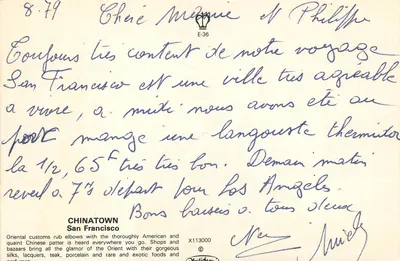 8.79
Chéré Mémée et Philippe
E-36
Toujours très content de notre voyage
San Francisco est une ville très agréable
a vivre, a midi nous avons été au
port mangé une langouste thermidor
la 1/2, 65F très très bon. Demain matin
reveil a 7h départ pour Los Angélès.
Bons baisers a tous deux
CHINATOWN
San Francisco
Oriental customs rub elbows with the thoroughly American and
quaint Chinese patter is heard everywhere you go. Shops and
bazaars bring all the glamor of the Orient with their gorgeous
silks, lacquers, teak, porcelain and rare and exotic foods and
X113000
©